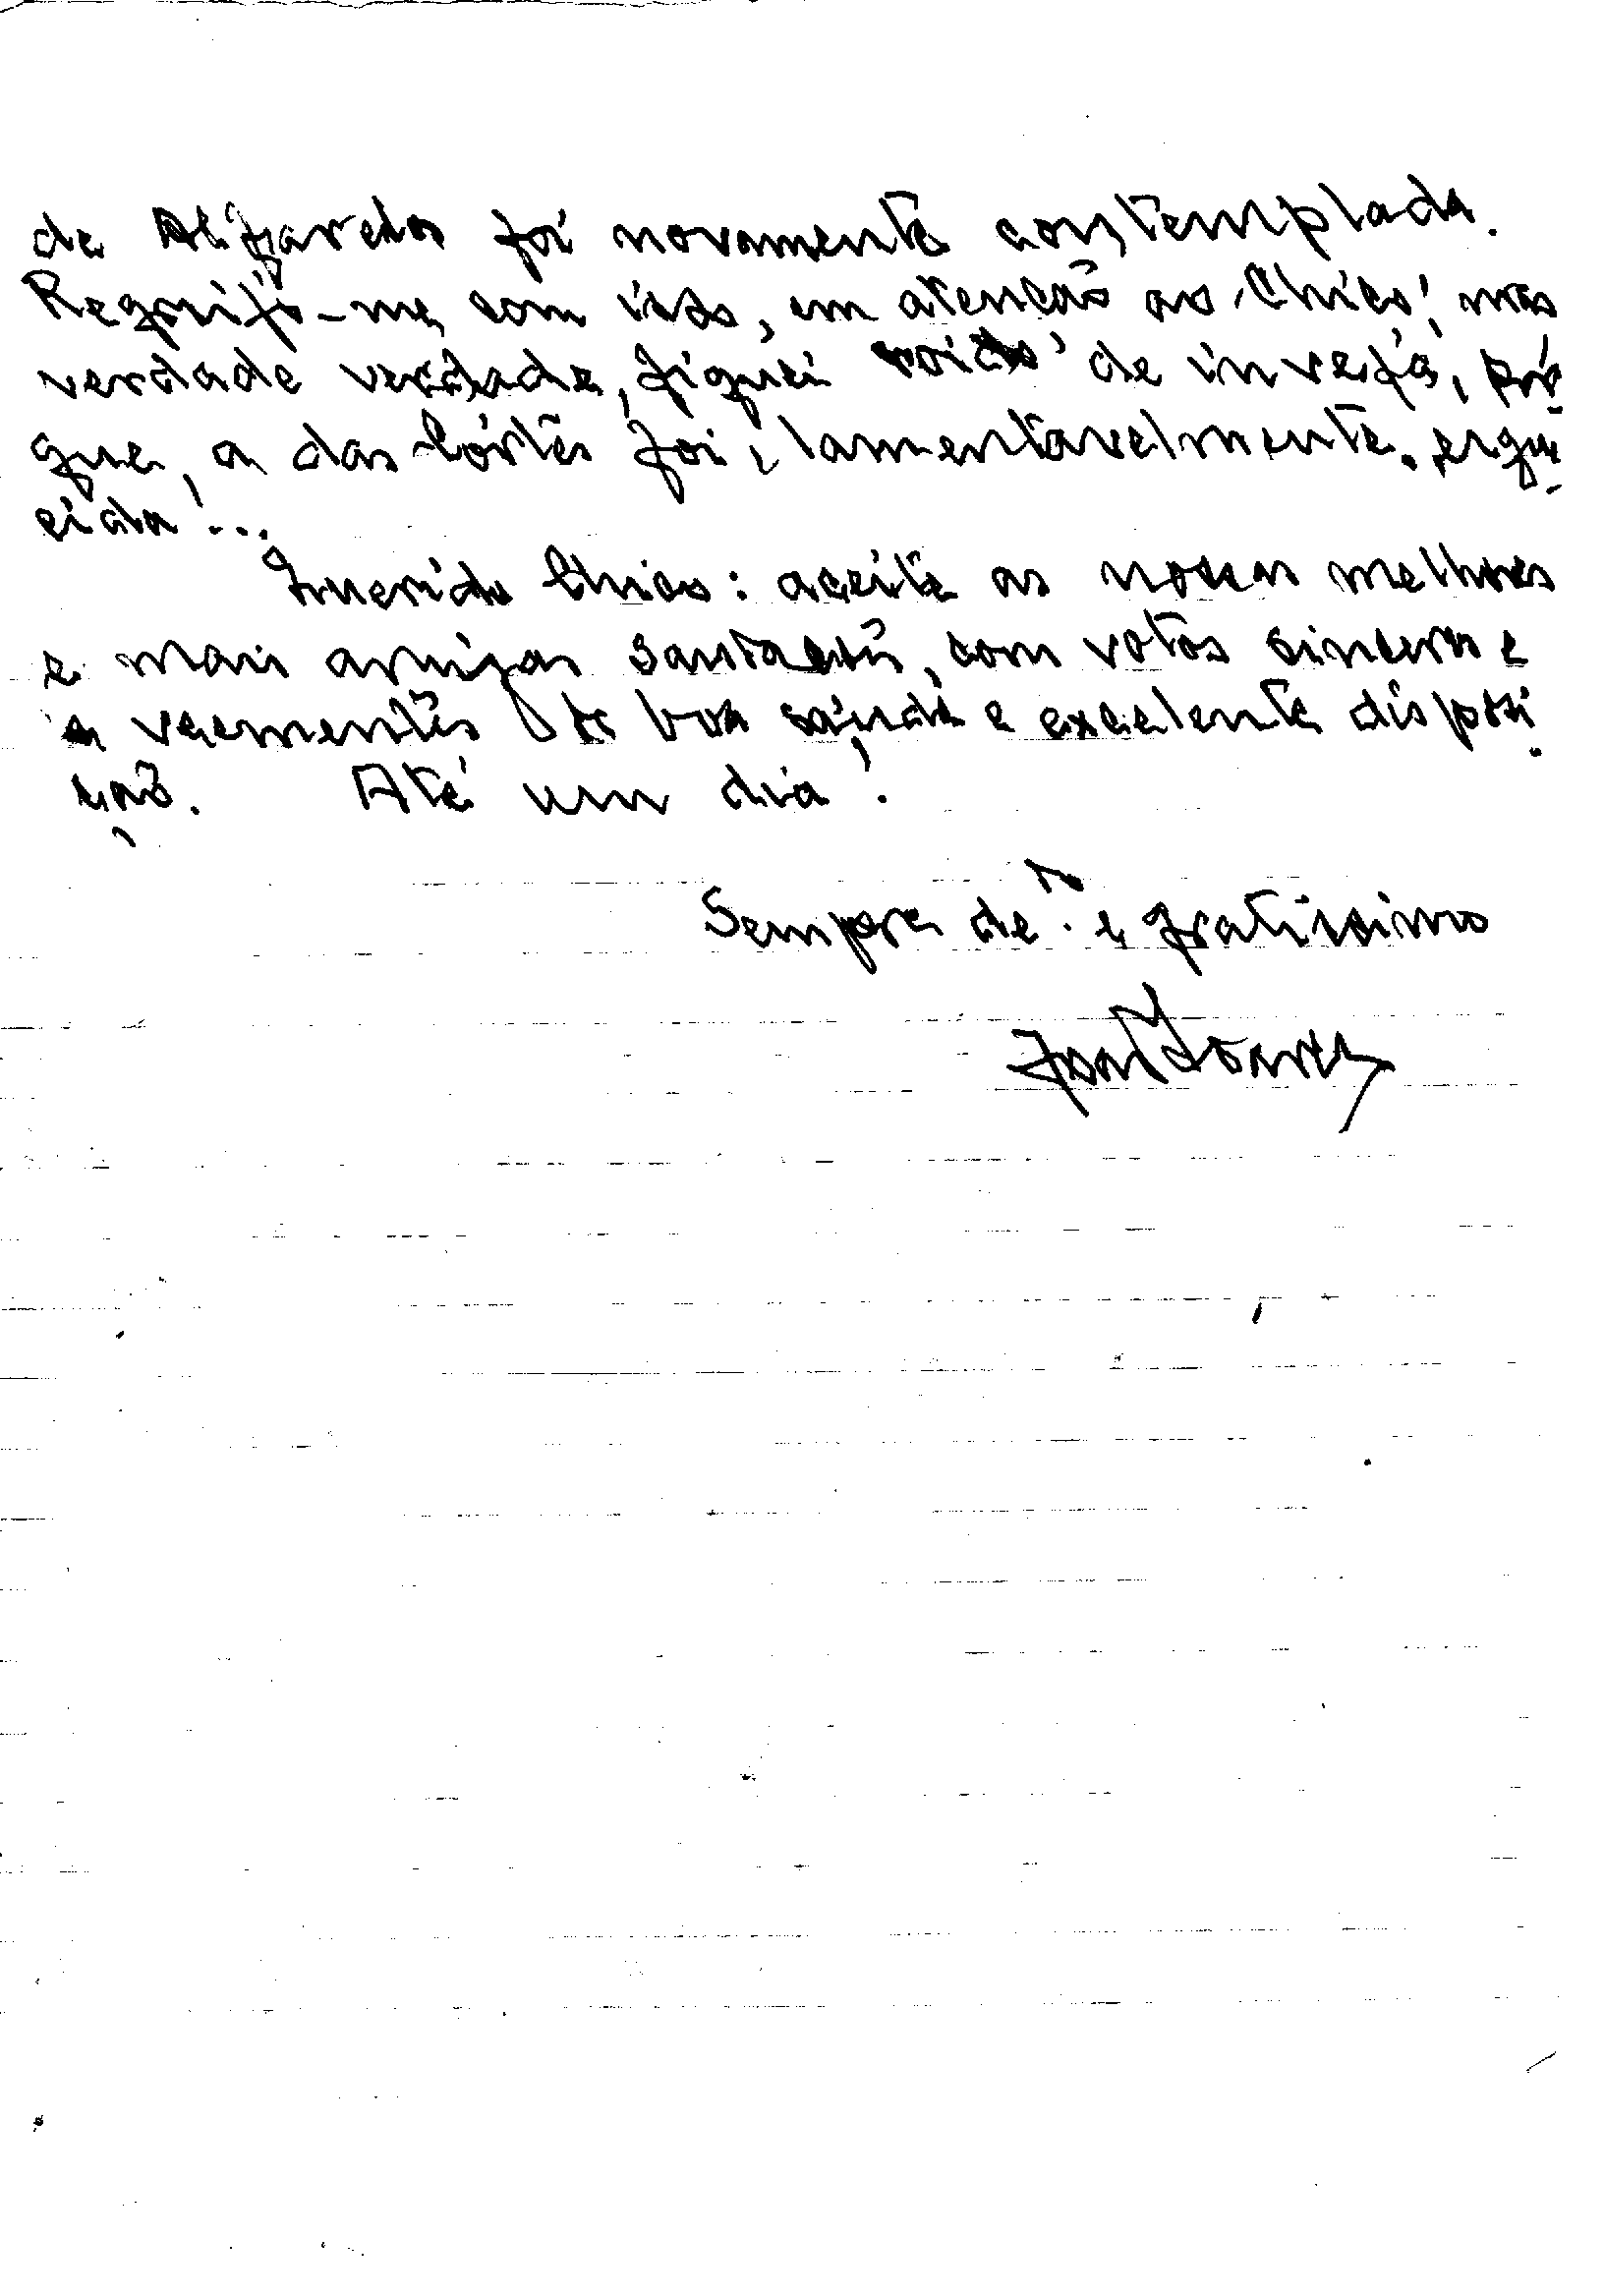 de Alfarelos foi novamente contemplada.
Regozijo-me, com isso, em atenção ao Chico! mas
verdade verdade, fiquei roido de inveja, por
que, a das Côrtes foi, lamentavelmente, esque
cida!...
Querido Chico: aceite as nossas melhores
e mais amigas saudações, com votos sinceros e
veementes de boa saúde e excelente disposi
ção. Até um dia!
Sempre de e gratissimo